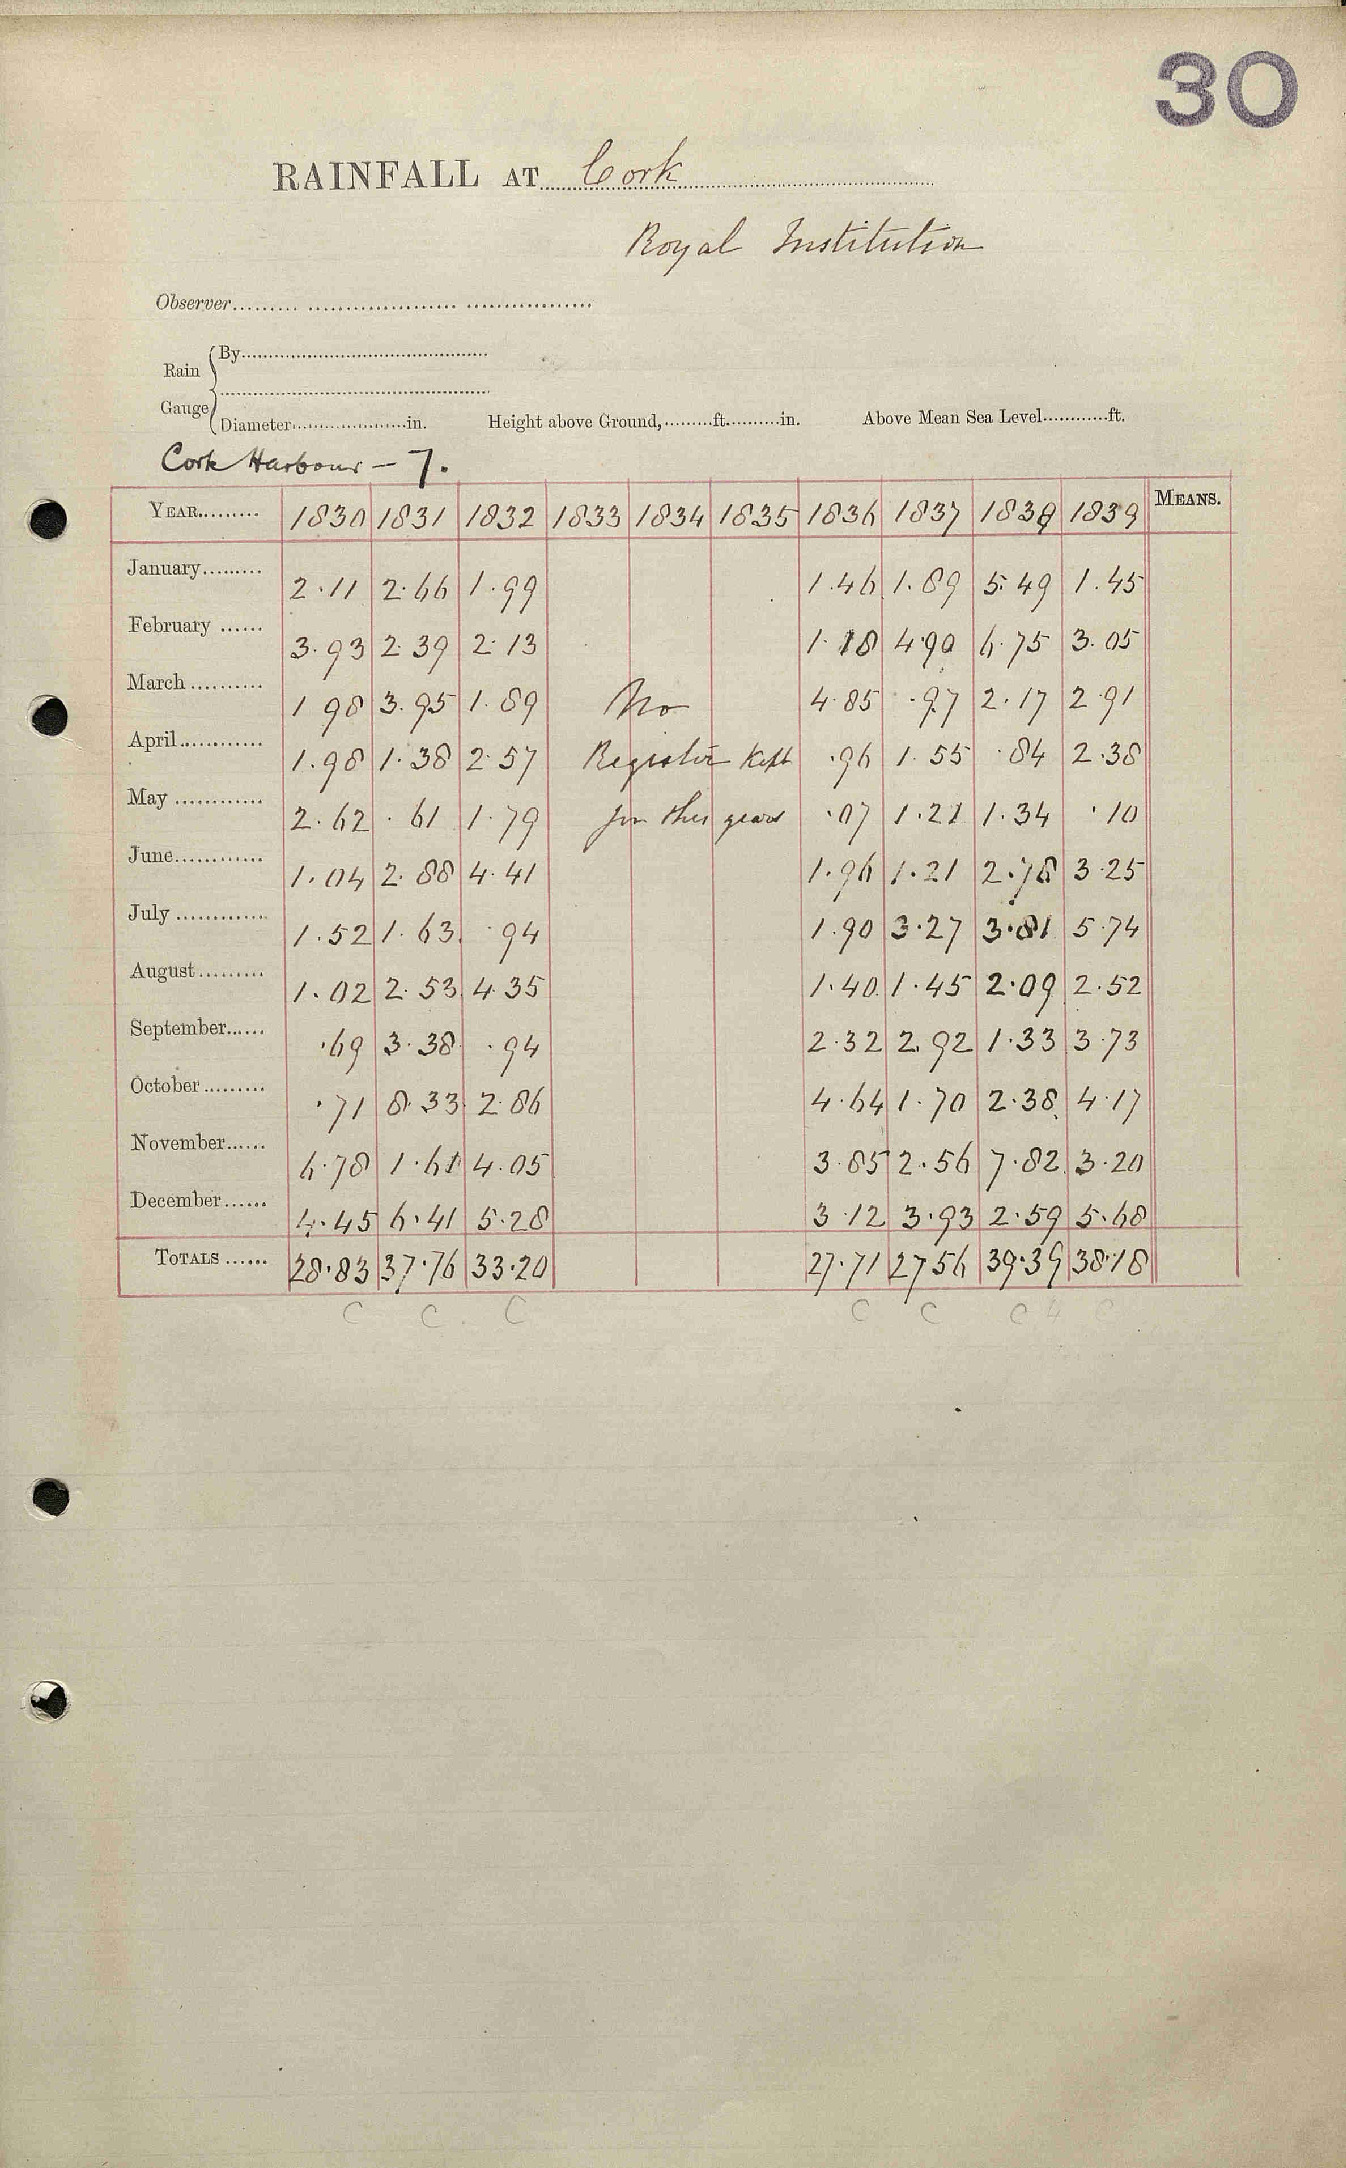 30
RAINFALL AT Cork
Royal Institution
Observer
Rain Gauge { By
Diameter in. Height above Ground, ft. in. Above Mean Sea Level ft.
Cork Harbour - 7.
YEAR 1830 1831 1832 1833 1834 1835 1836 1837 1838 1839 MEANS.
January 2.11 2.66 1.99 1.46 1.89 5.49 1.45
February 3.93 2.39 2.13 1.18 4.90 6.75 3.05
March 1 98 3.95 1.89 No 4.85 .97 2.17 2.91
April 1.98 1.38 2.57 Register kept .96 1.55 .84 2.38
May 2.62 .61 1.79 for this years .07 1.21 1.34 .10
June 1.04 2.88 4.41 1.96 1.21 2.78 3.25
July 1.52 1.63 .94 1.90 3.27 3.81 5.74
August 1.02 2.53 4.35 1.40 1.45 2.09 2.52
September .69 3.38 .94 2.32 2.92 1.33 3.73
October .71 8.33 2.86 4.64 1.70 2.38 4.17
November 6.78 1.61 4.05 3.85 2.56 7.82 3.20
December 4.45 6.41 5.28 3.12 3.93 2.59 5.68
TOTALS 28.83 37.76 33.20 27.71 27 56 39.39 38.18
C C . C C C C 4 C